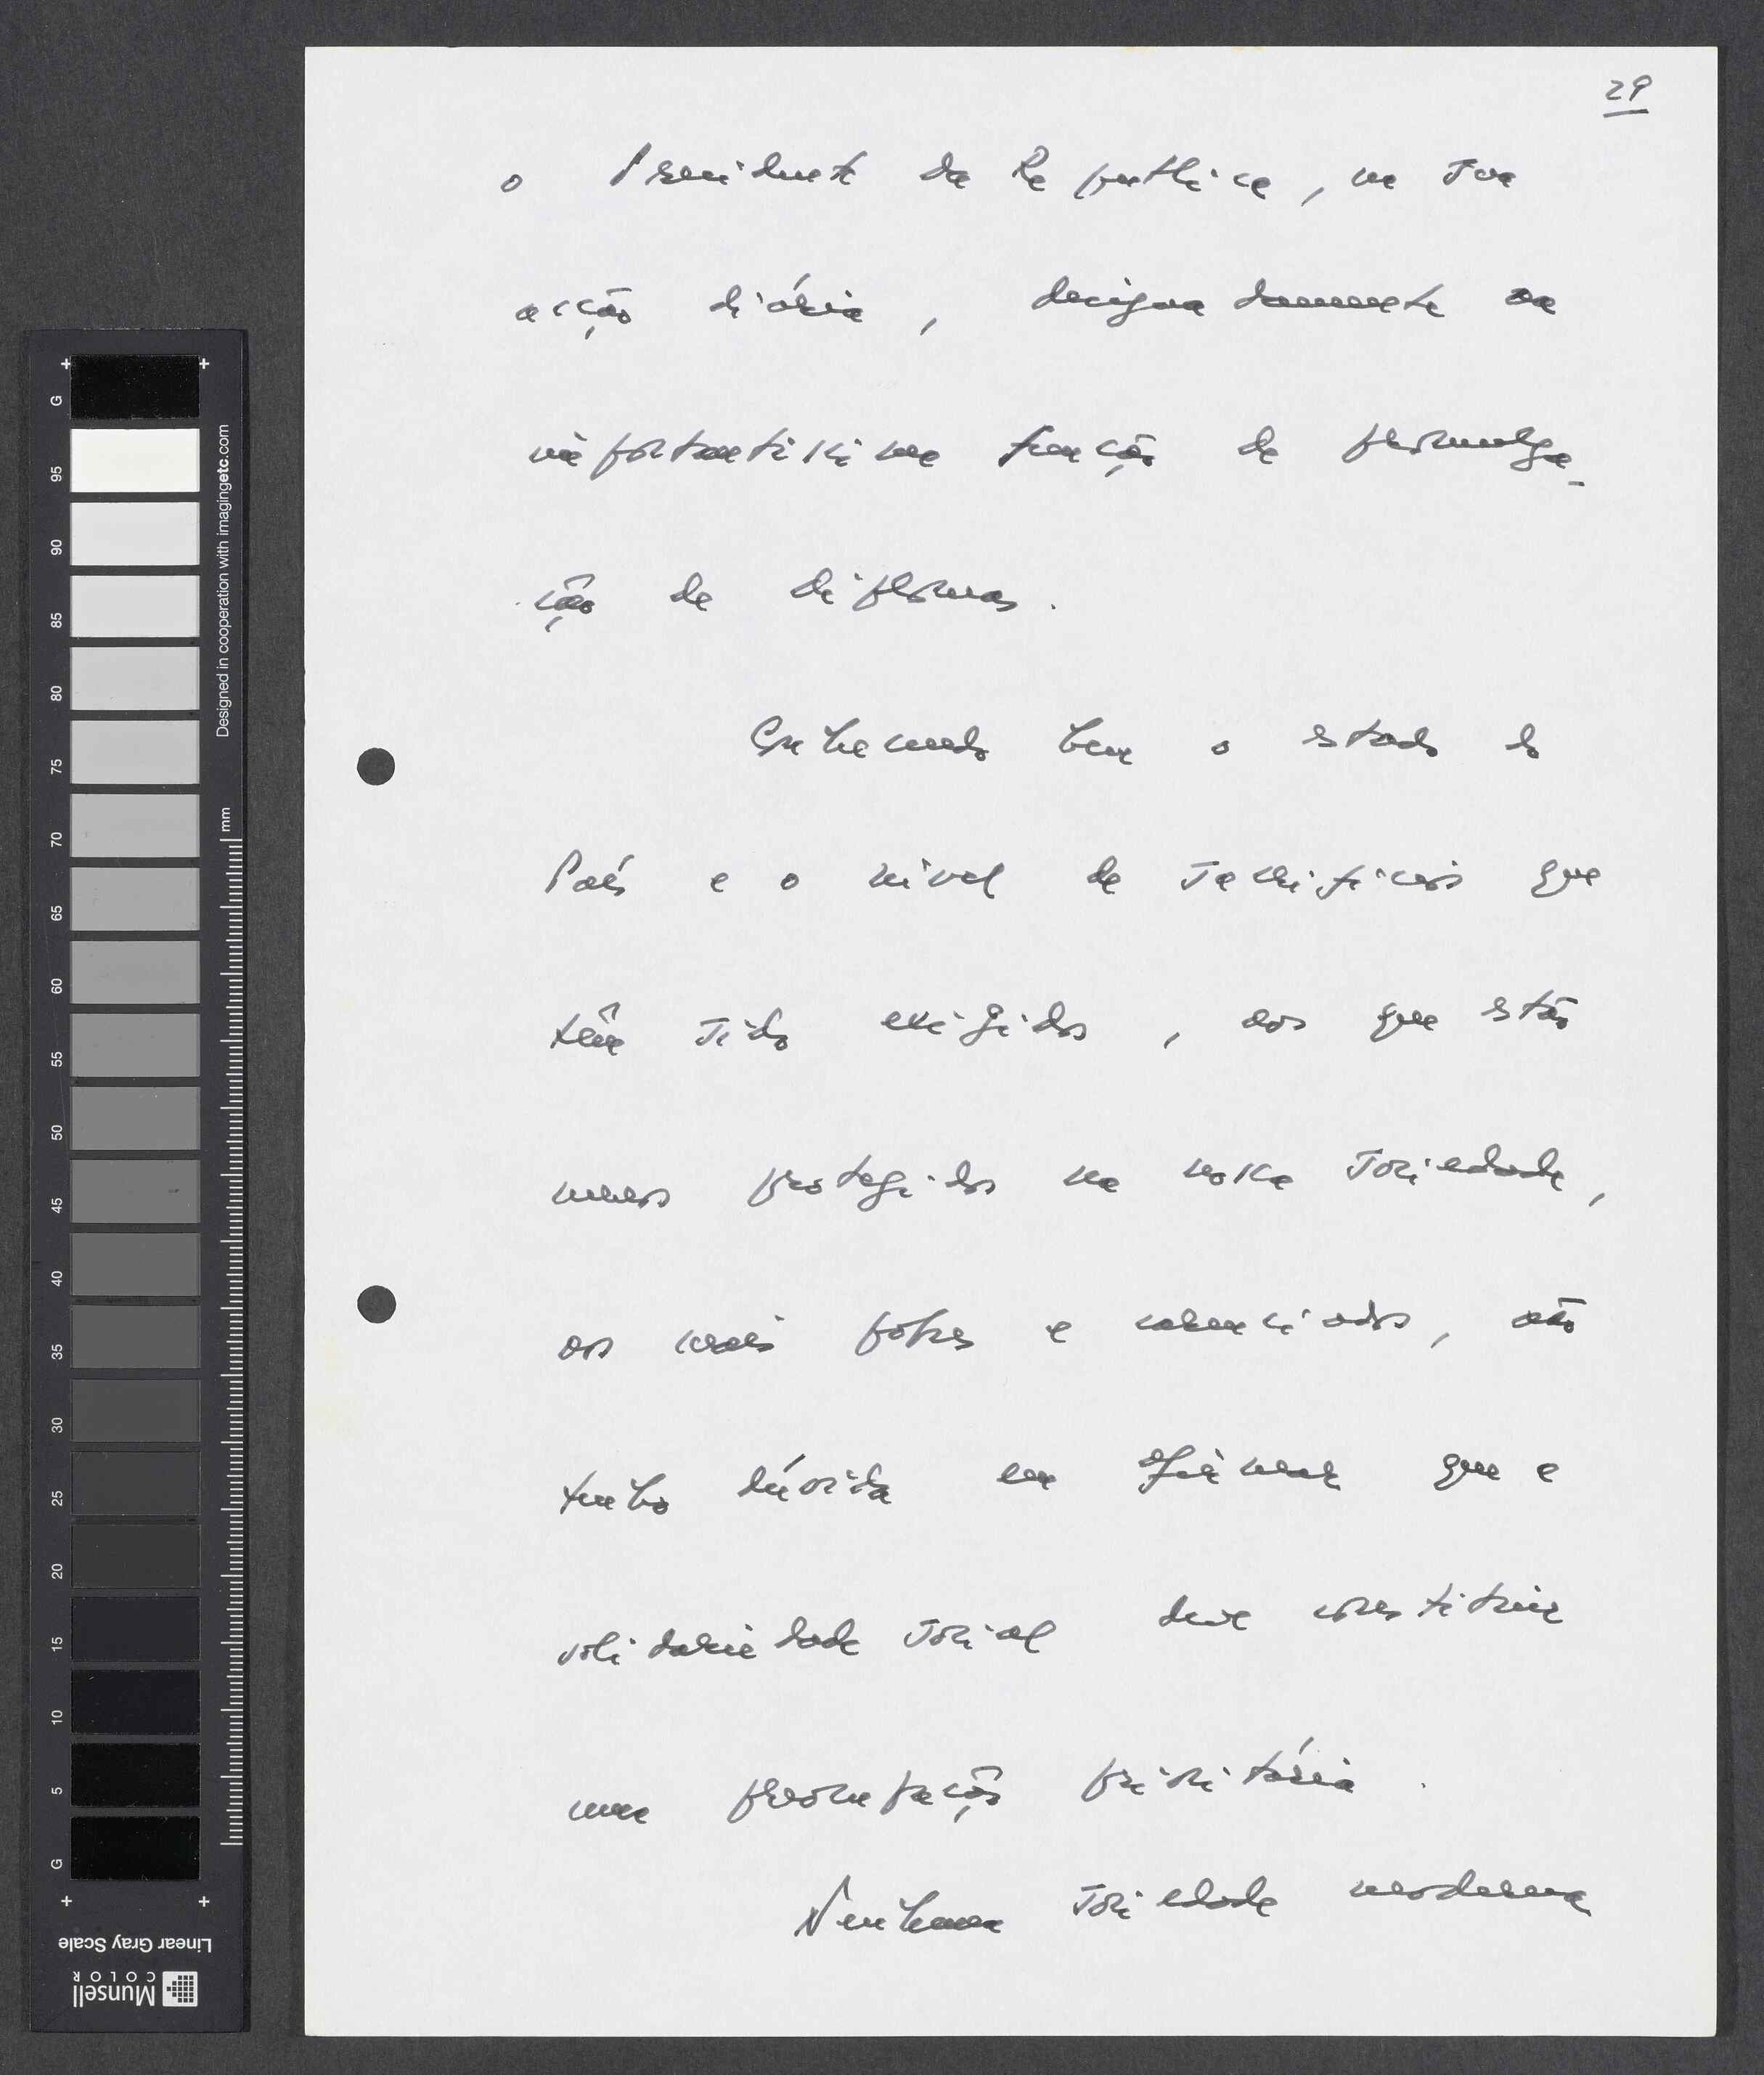 29
o Presidente da República, na sua
acção diária, designadamente na
importantíssima função de promulga-
ção de diplomas.
Conhecendo bem o estado do
País e o nível de sacrifícios que
têm sido exigidos, aos que estão
menos protegidos na nossa sociedade,
aos mais pobres e carenciados, não
tenho dúvida em afirmar que a
solidariedade social deve constituir
uma preocupação prioritária.
Nenhuma sociedade moderna
G 95 90 85 80 75 70 65 60 55 50 45 40 35 30 25 20 15 10 5 G
Designed in cooperation with imagingetc.com
mm
Linear Gray Scale
Munsell
COLOR